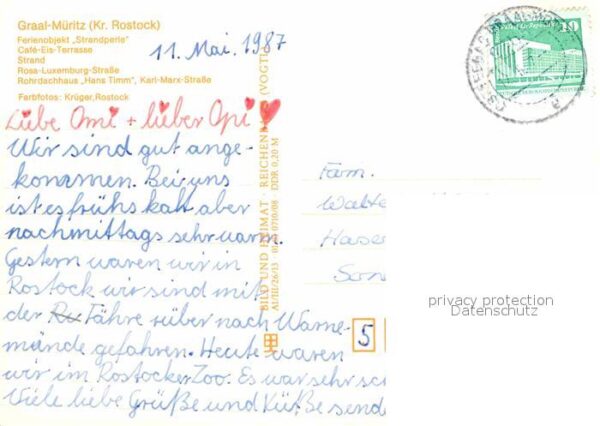 Graal-Müritz (Kr. Rostock)
Ferienobjekt „Strandperle"
Café-Eis-Terrasse
Strand
Rosa-Luxemburg-Straße
Rohrdachhaus „Hans Timm", Karl-Marx-Straße
Farbfotos: Krüger, Rostock
11. Mai. 1987
Liebe Omi + lieber Opi
Wir sind gut ange-
kommen. Bei uns
ist es frühs kalt aber
nachmittags sehr warm.
Gestern waren wir in
Rostock wir sind mit
der Fähre rüber nach Warne-
münde gefahren. Heute waren
wir im Rostocker Zoo. Es war sehr sc
Viele liebe Grüße und Küße send
BILD UND HEIMAT · REICHENBACH (VOGTL)
A1/III/26/13 DDR 0,20 M
Fam.
Walte
Haser
Son
5
10
privacy protection
Datenschutz